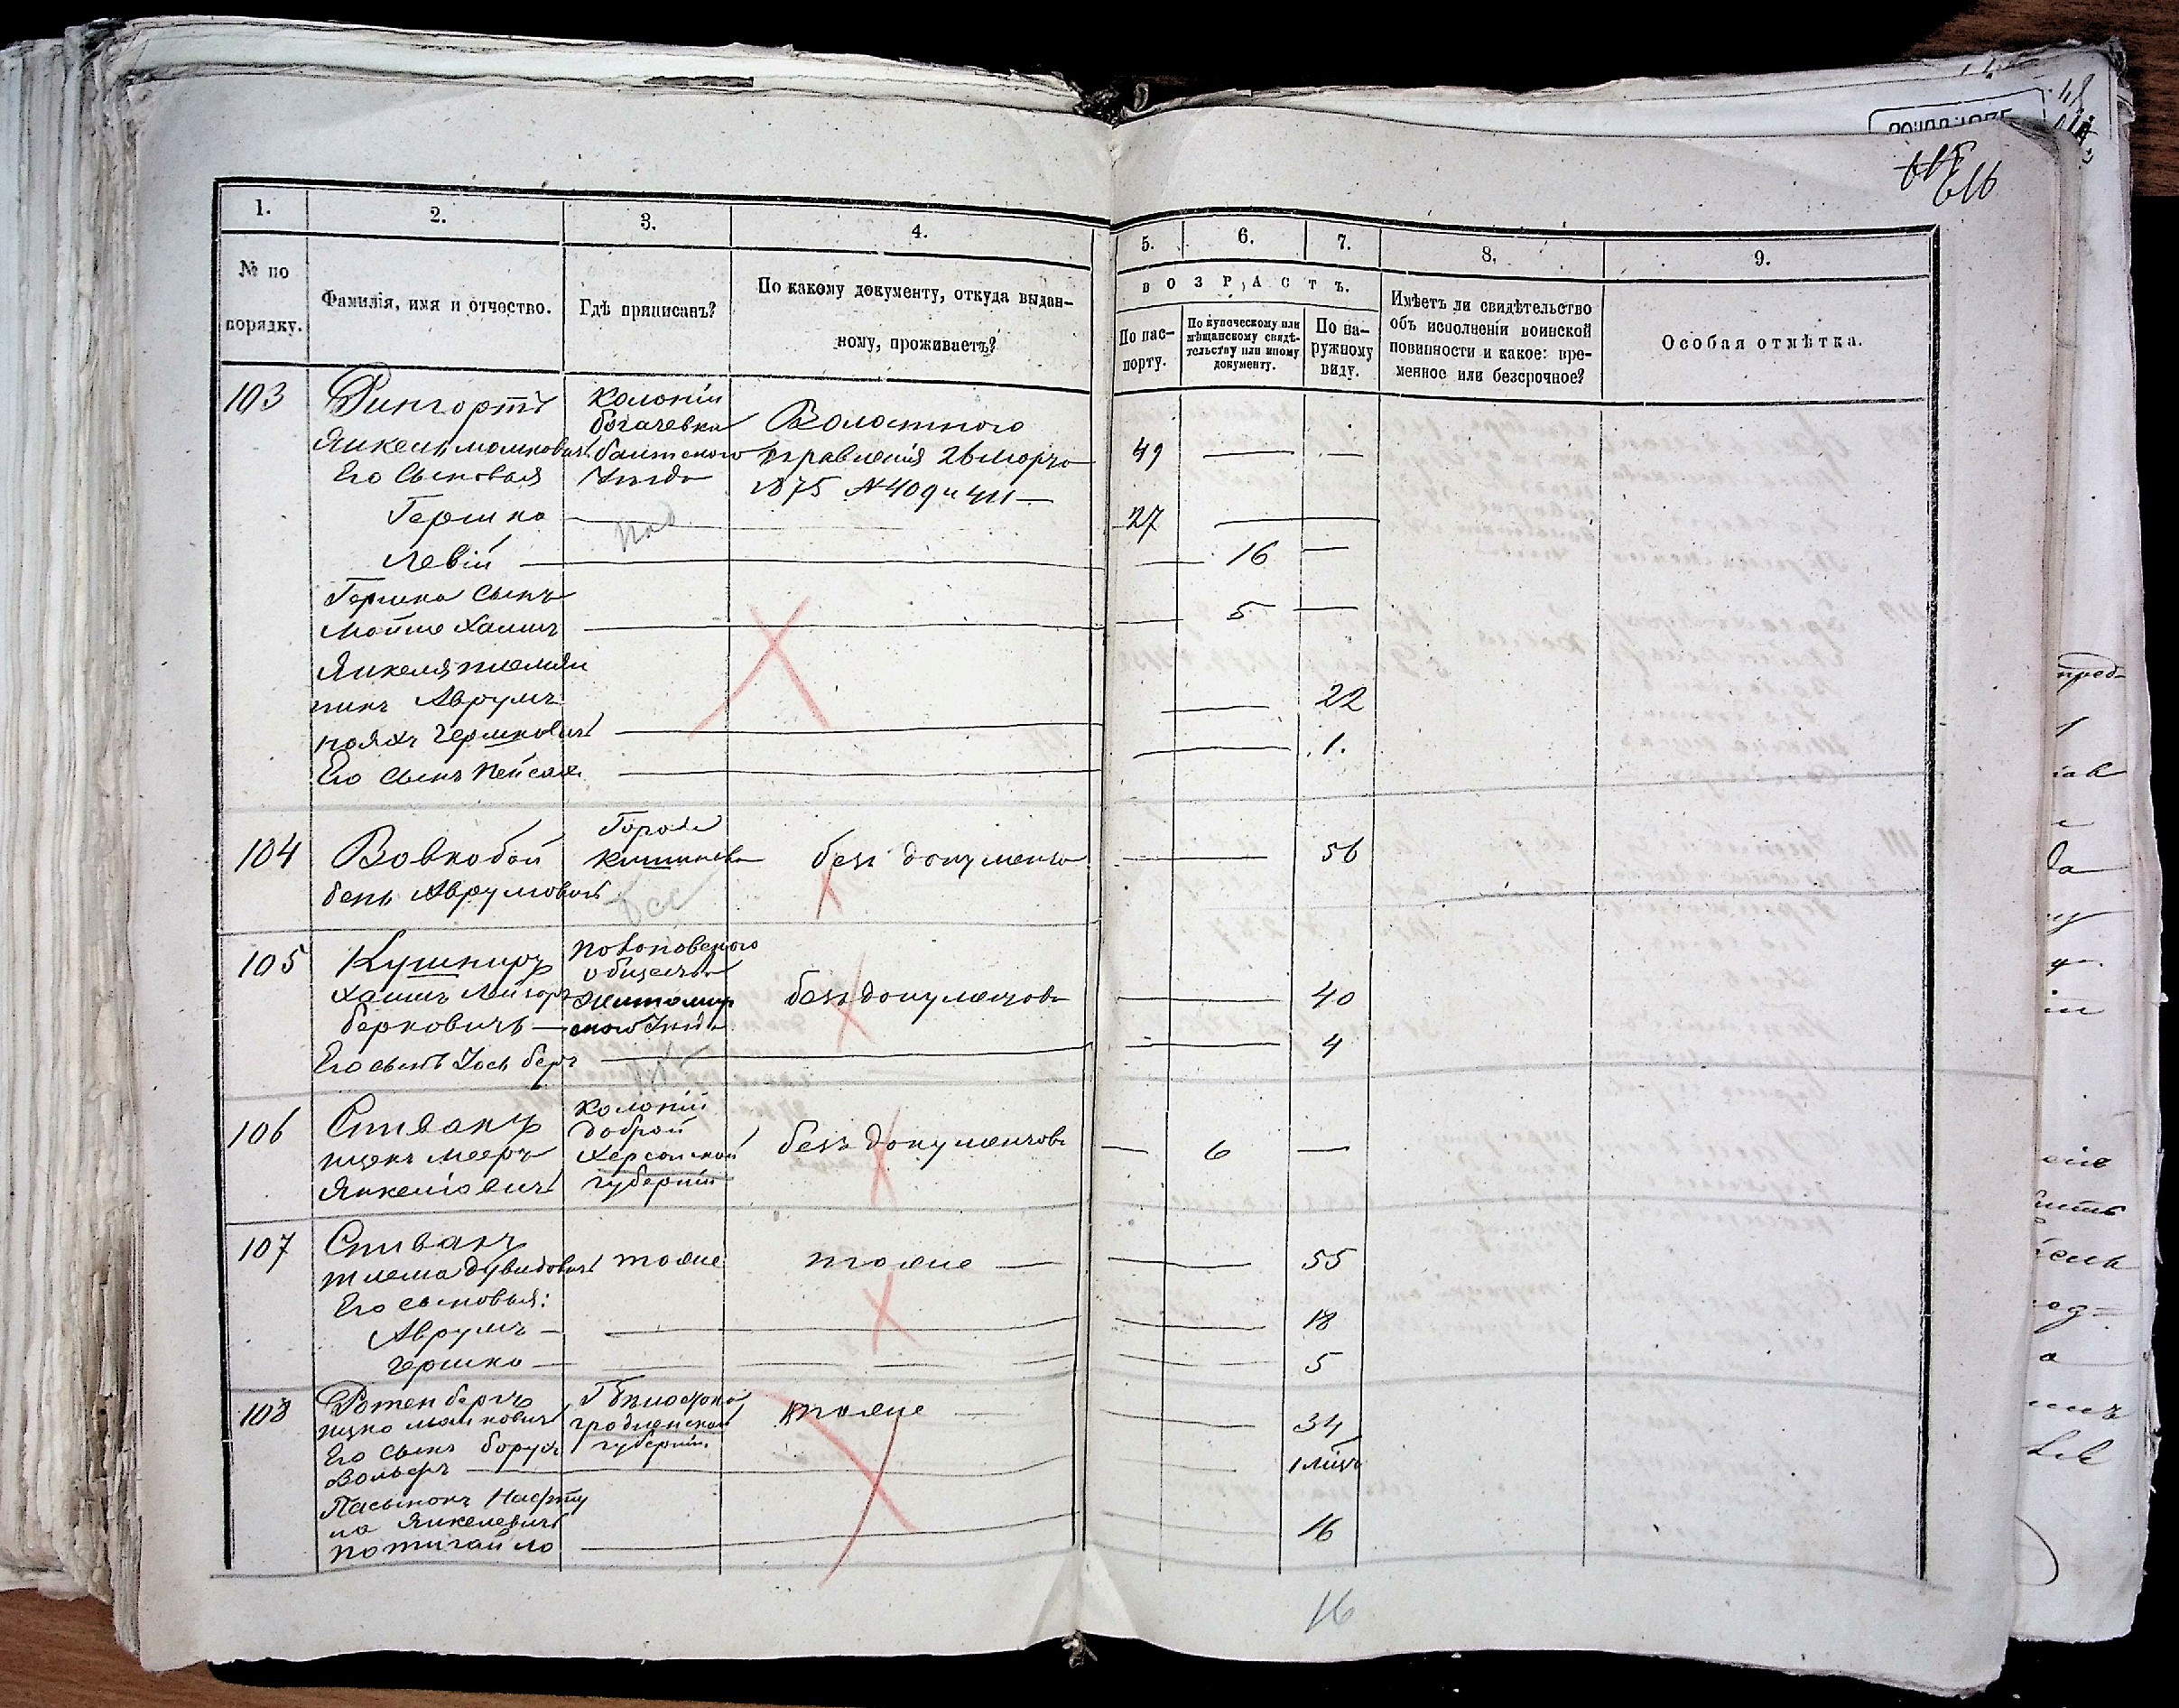 615
616
1.
2.
3.
4.
5.
6.
7.
8.
9.
№ по порядку.
Фамилія, имя и отчество.
Гдѣ приписанъ?
По какому документу, откуда выдан-
ному, проживаетъ?
ВОЗРАСТЪ.
По пас-
порту.
По купеческому или
мѣщанскому свидѣ-
тельству или иному
документу.
По на-
ружному
виду.
Имѣетъ ли свидѣтельство
объ исполненіи воинской
повинности и какое: вре-
менное или безсрочное?
Особая отмѣтка.
103
Рингортъ
Янкель мошковичъ
Его Сыновья
Колоніи
богачевки
балтского
Уѣзда
Волостного
правленія 26 марта
1875 № 409 и 411 —
49
Гершко
27
Левій
16
Гершка Сынъ
Мойше Хаимъ
5
Янкеля племян
никъ Аврумъ
22
Гершковичъ
Его Сынъ Пейсах
1.
104
Вовкобой
бень Аврумовичъ
Города
Кишинева
безъ документа
56
105
Кушниръ
Хаимъ Лейзоръ
берковичъ —
общества
Житомир
ского Уѣзда
безъ документовъ
40
Его сынъ Іось беръ
4
106
Спивакъ
ицекъ мееръ
Янкеліовичъ
Колоніи
доброй
Херсонской
губерніи
безъ документовъ
6
107
Спивакъ
шлема дувидовичъ
тоже
тоже —
55
Его сыновья:
Аврумъ —
18
Гершко —
5
108
Ротенбергъ
ицко маиковичъ
Его сынъ борухъ
Вольфъ
гродненской
губерніи.
тоже
34
1 мѣсъ
Пасынокъ Нафту
ла Янкелевичъ
потигайло
16
16